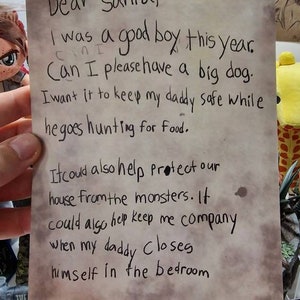 Dear Santa,
I was a good boy this year.
Can I please have a big dog.
I want it to keep my daddy safe while
he goes hunting for food.
It could also help protect our
house from the monsters. It
could also help keep me company
when my daddy closes
himself in the bedroom